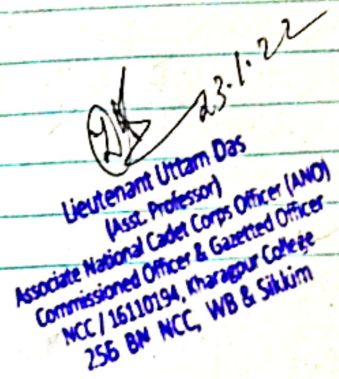 23.1.22
Lieutenant Uttam Das
(Asst. Professor)
Associate National Cadet Corps Officer (ANO)
Commissioned Officer & Gazetted Officer
NCC / 16110194, Kharagpur College
256 BN NCC, WB & Sikkim